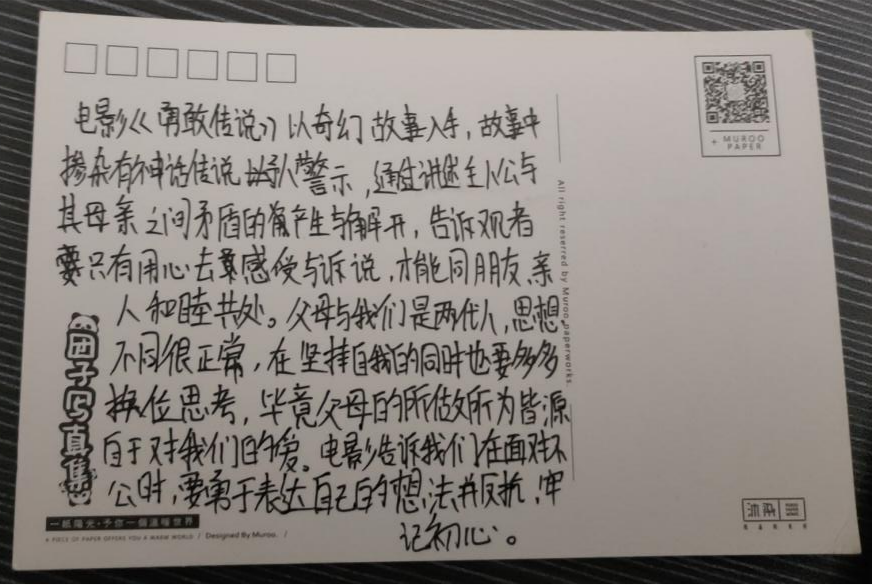 电影《勇敢传说》以奇幻故事入手，故事中
掺杂有神话传说予人警示，通过讲述主人公与
其母亲之间矛盾的产生与解开，告诉观者
只有用心去感受与诉说，才能同朋友、亲
人和睦共处。父母与我们是两代人，思想
不同很正常，在坚持自我的同时也要多多
换位思考，毕竟父母的所做所为皆源
自于对我们的爱。电影告诉我们在面对不
公时，要勇于表达自己的想法并反抗，牢
记初心。
团子写真集
一紙陽光·予你一個溫暖世界
A PIECE OF PAPER OFFERS YOU A WARM WORLD / Designed By Muroo. /
All right reserred by Muroo paperworks.
+ MUROO
PAPER